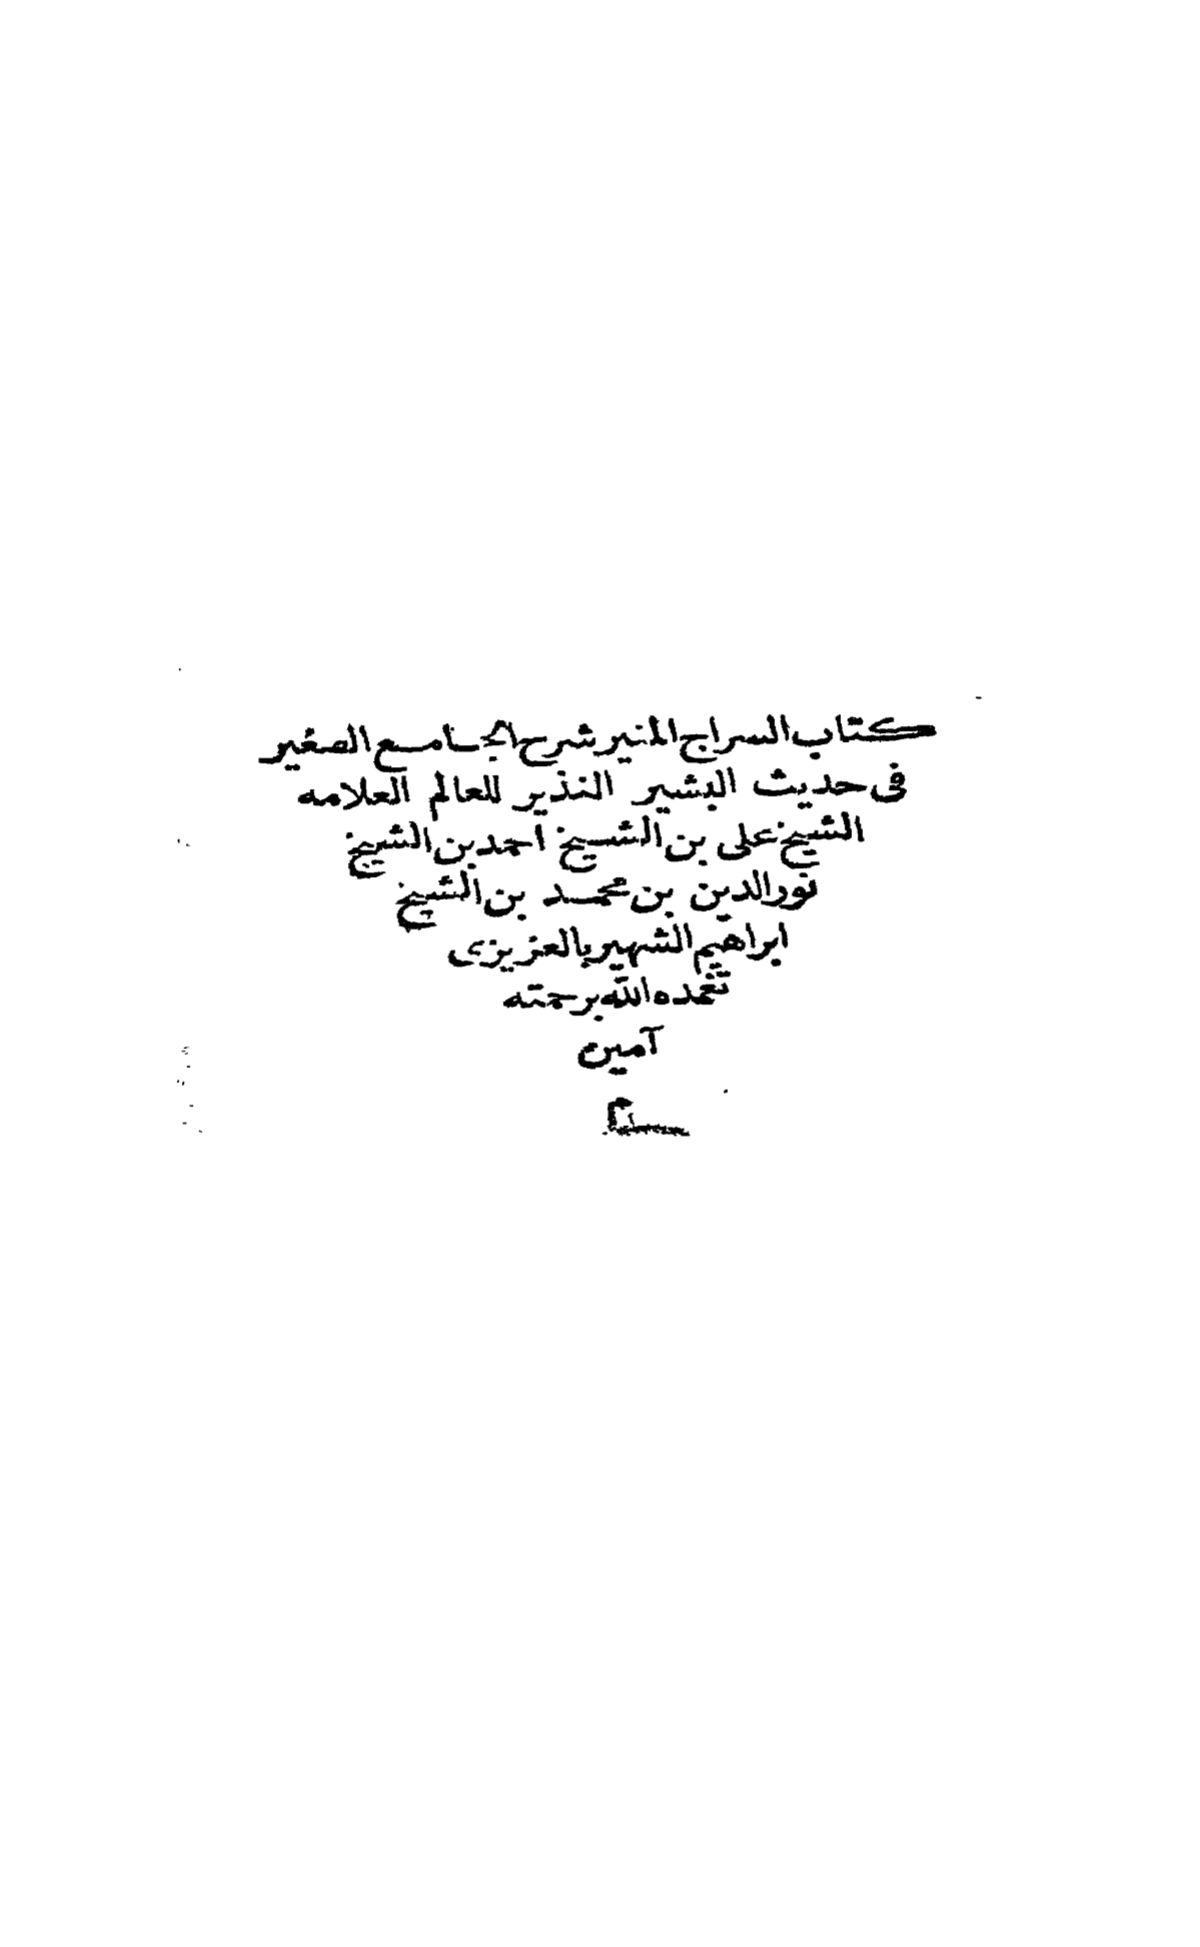 كتاب السراج المنير شرح الجامع الصغير
فى حديث البشير النذير للعالم العلامه
الشيخ على بن الشيخ احمد بن الشيخ
نور الدين بن محمد بن الشيخ
ابراهيم الشهير بالعزيزى
تغمده الله برحمته
آمين